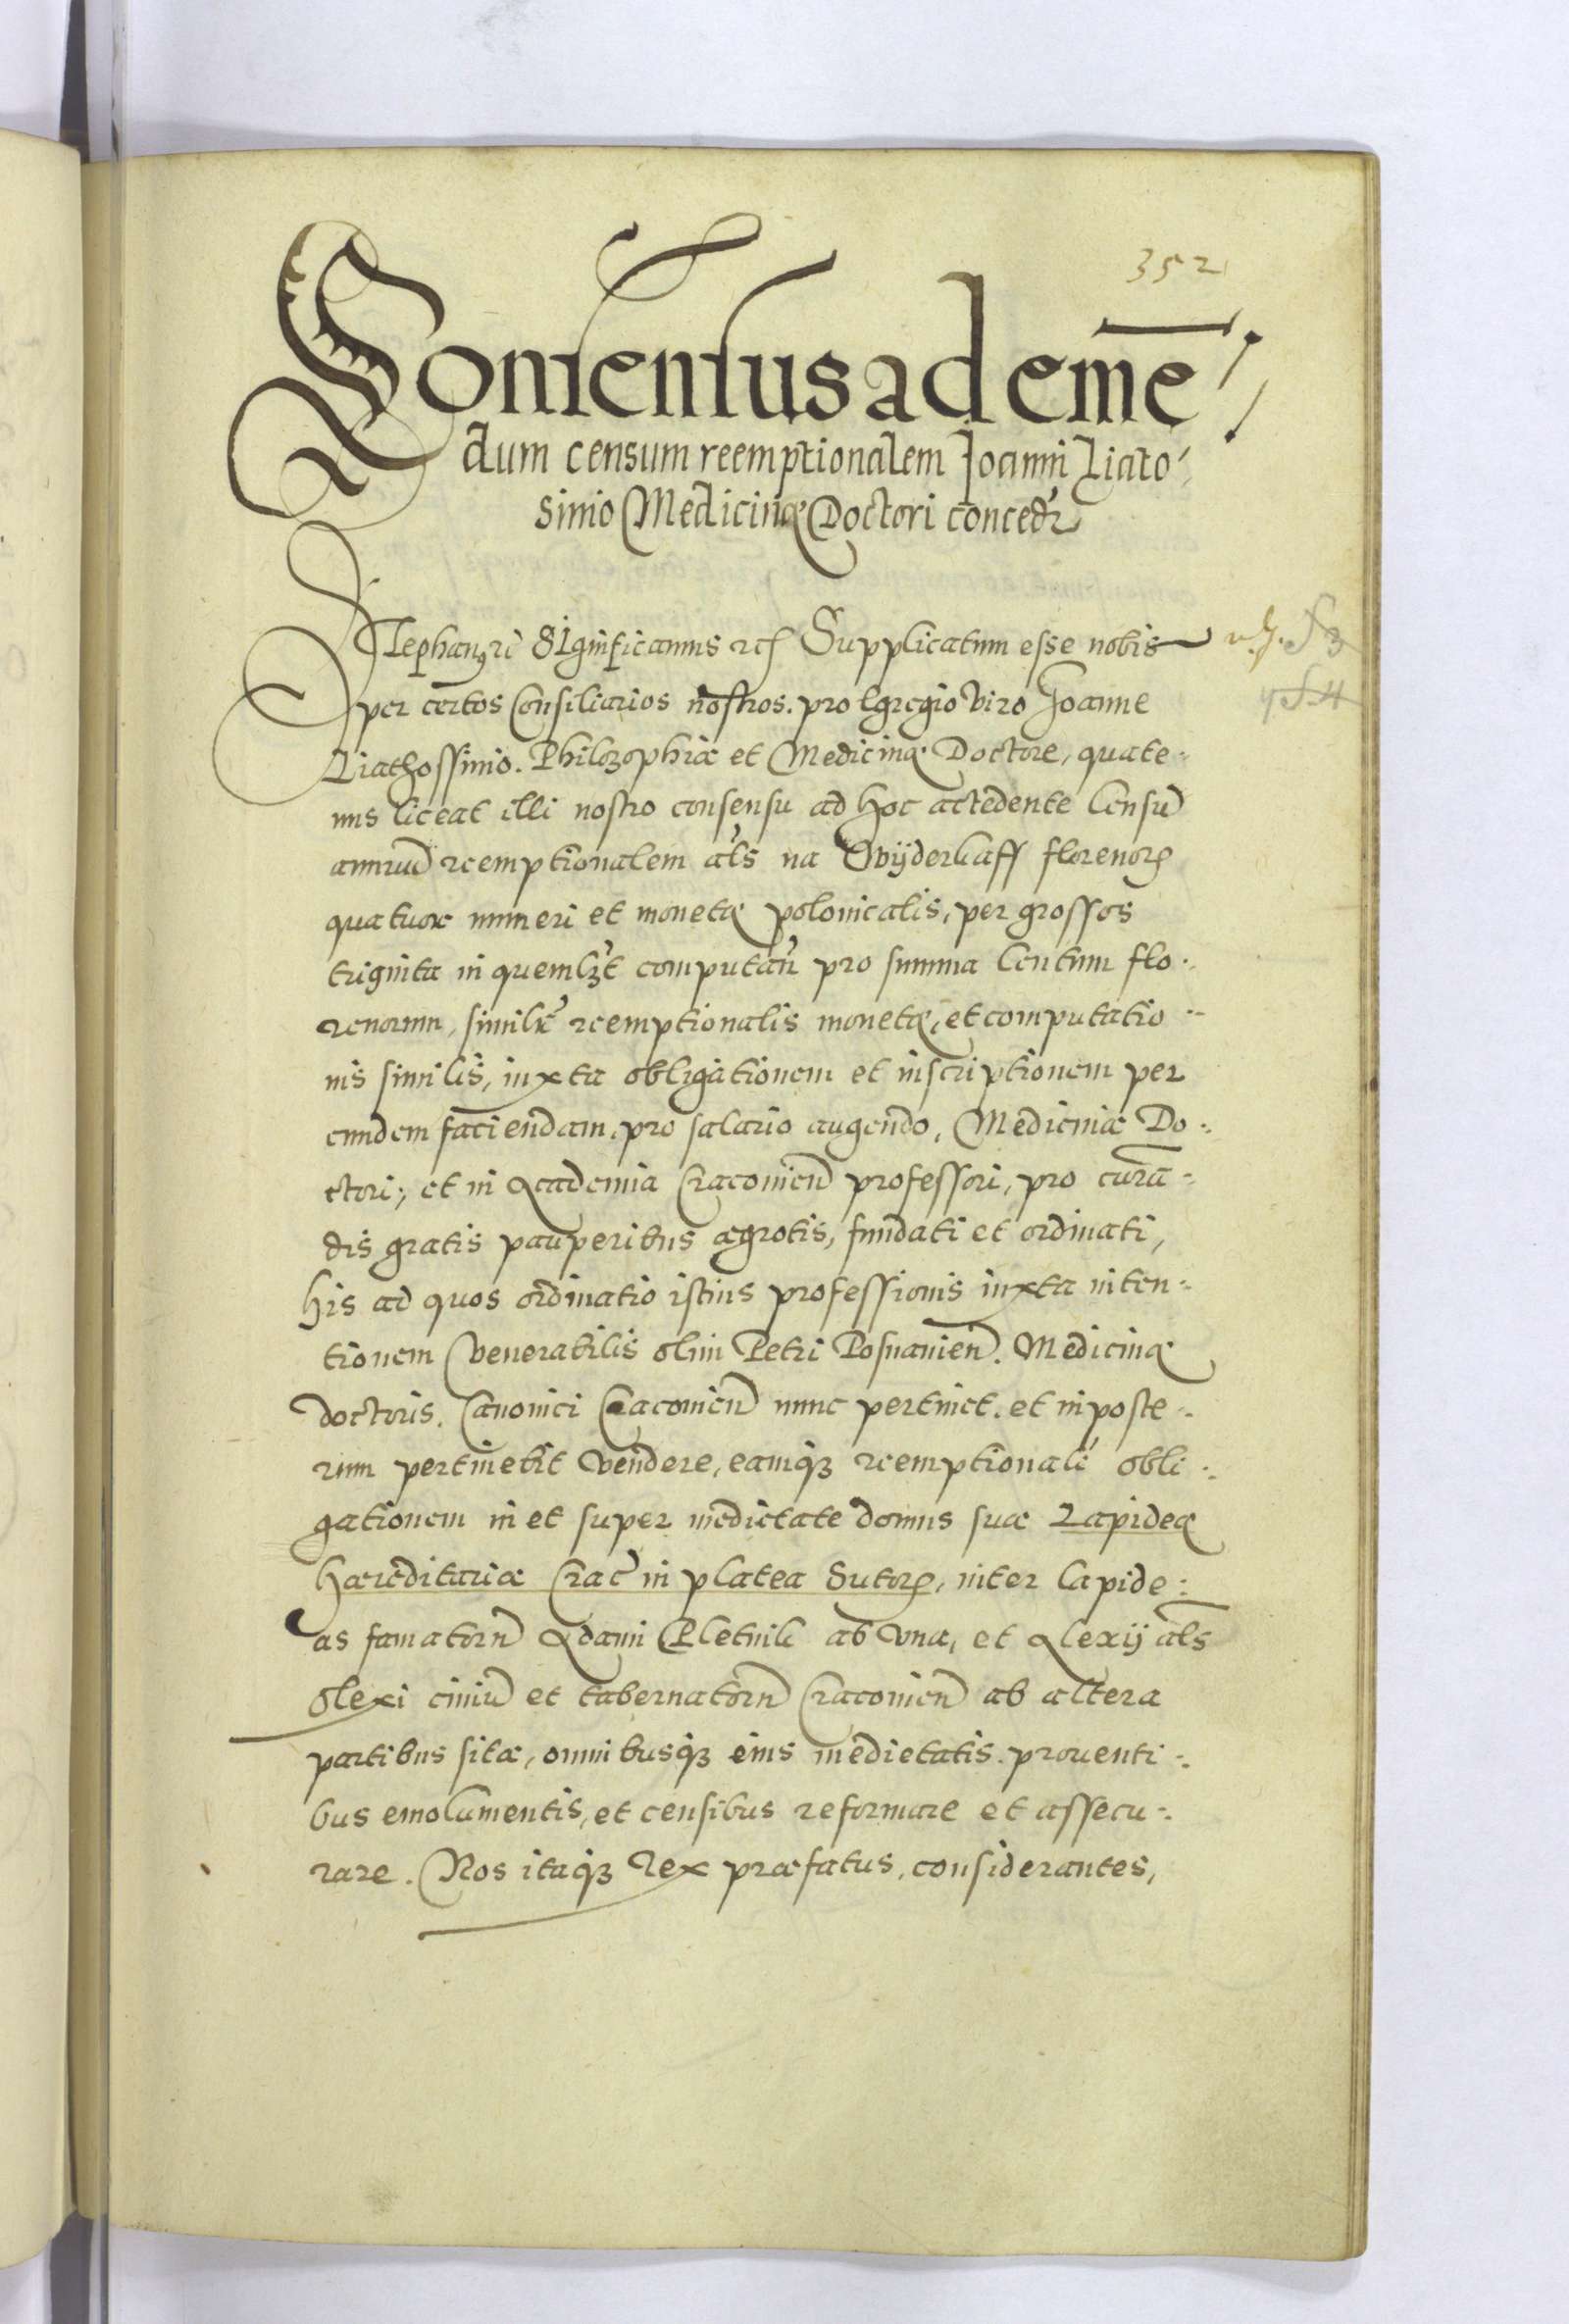 352
Consensus ad emē
dum censum reemptionalem Joanni Liato⸗
sinio Medicinæ Doctori conceditur
Stephanus rc̄ Significamus etc Supplicatum esse nobis
per certos Consiliarios nostros. pro Egregio Viro Joanne
Liathossinio. Philozophiæ et Medicinæ Doctore, quate⸗
nus liceat illi nostro consensu ad hoc accedente Censū
annuū reemptionalem als na Wÿderkaff florenorum
quatuor numeri et monetæ polonicalis, per grossos
triginta in quemlꝫt computan̄ pro summa Centum flo⸗
renorum, similr̄ reemptionalis monetæ, et computatio⸗
nis similis, iuxta obligationem et inscriptionem per
eundem faciendam, pro salario augendo, Medicinæ Do⸗
ctori, et in Academia Cracovien̄ professori, pro curā⸗
dis gratis pauperibus ægrotis, fundati et ordinati,
his ad quos ordinatio istius professionis iuxta inten⸗
tionem Venerabilis olim Petri Posnanien̄. Medicinæ
doctoris. Canonici Cracovien̄ nunc pertinet. et in poste⸗
rum pertinebit vendere, eamqꝫ reemptionalē obli⸗
gationem in et super medietate domus suæ Lapideæ
hæreditariæ Crac̄ in platea Sutorum, inter lapide⸗
as famatorū Adami Pletnik ab vna, et Alexij als
olexi civiū et tabernatorū Cracovien̄ ab altera
partibus sitæ, omnibusqꝫ eius medietatis. proventi⸗
bus emolumentis, et censibus reformare et assecu⸗
rare. Nos itaqꝫ Rex præfatus, considerantes,